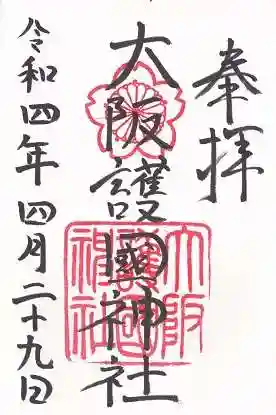 奉拝
大阪護國神社
令和四年四月二十九日
大阪護國神社